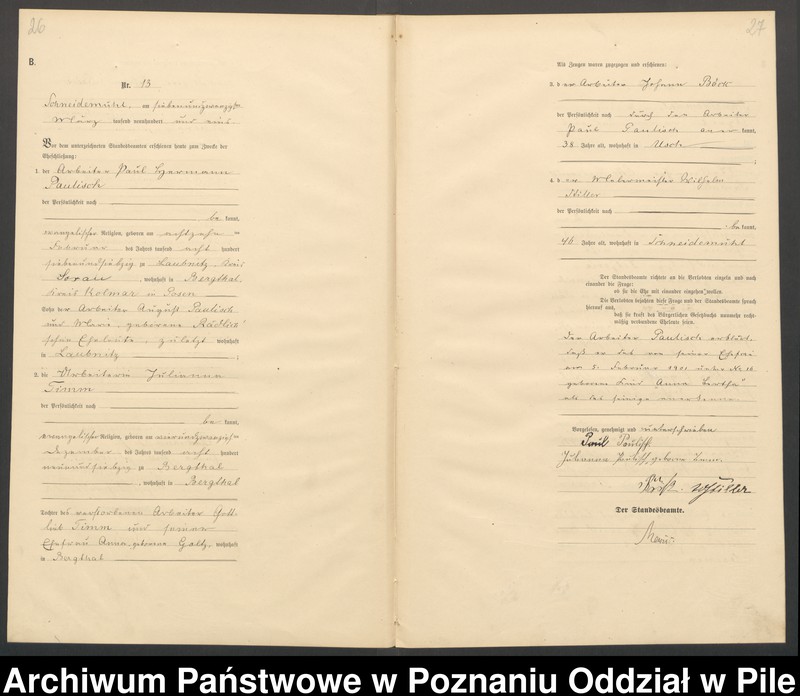 26
B.
Nr. 13
Schneidemühl, am siebenundzwanzigsten
März tausend neunhundert und eins
Vor dem unterzeichneten Standesbeamten erschienen heute zum Zwecke der
Eheschließung:
1. der Arbeiter Paul Hermann
Paulisch
der Persönlichkeit nach
be kannt,
evangelischer Religion, geboren am achtzehn ten
Februar des Jahres tausend acht hundert
siebenundsiebzig zu Laubnitz, Kreis
Sorau, wohnhaft in Bergthal,
Kreis Kolmar in Posen
Sohn der Arbeiter August Paulisch
und Marie, geborene
schen Eheleute, zuletzt wohnhaft
in Laubnitz ;
2. die Arbeiterin Julianna
Timm
der Persönlichkeit nach
be kannt,
evangelischer Religion, geboren am vierundzwanzigsten
Dezember des Jahres tausend acht hundert
neunundsiebzig zu Bergthal
, wohnhaft in Bergthal
Tochter des verstorbenen Arbeiter Gott-
lieb Timm und seiner
Ehefrau Anna, geborene Goltz, wohnhaft
in Bergthal
27
Als Zeugen waren zugezogen und erschienen:
3. der Arbeiter Johann Böck
der Persönlichkeit nach durch den Arbeiter
Paul Paulisch aner kannt,
38 Jahre alt, wohnhaft in Usch ;
4. der Webermeister Wilhelm
der Persönlichkeit nach
be kannt,
46 Jahre alt, wohnhaft in Schneidemühl
Der Standesbeamte richtete an die Verlobten einzeln und nach
einander die Frage:
ob sie die Ehe mit einander eingehen wollen.
Die Verlobten bejahten diese Frage und der Standesbeamte sprach
hierauf aus,
daß sie kraft des Bürgerlichen Gesetzbuchs nunmehr recht-
mäßig verbundene Eheleute seien.
Der Arbeiter Paulisch erklärt,
daß er das von seiner Ehefrau
am 5. Februar 1901 unter No 16
geborene Kind Anna Bertha
als das seinige anerkenne.
Vorgelesen, genehmigt und unterschrieben
Paul Paulisch
Julianna Paulisch, geborene Timm
Der Standesbeamte.
Archiwum Państwowe w Poznaniu Oddział w Pile